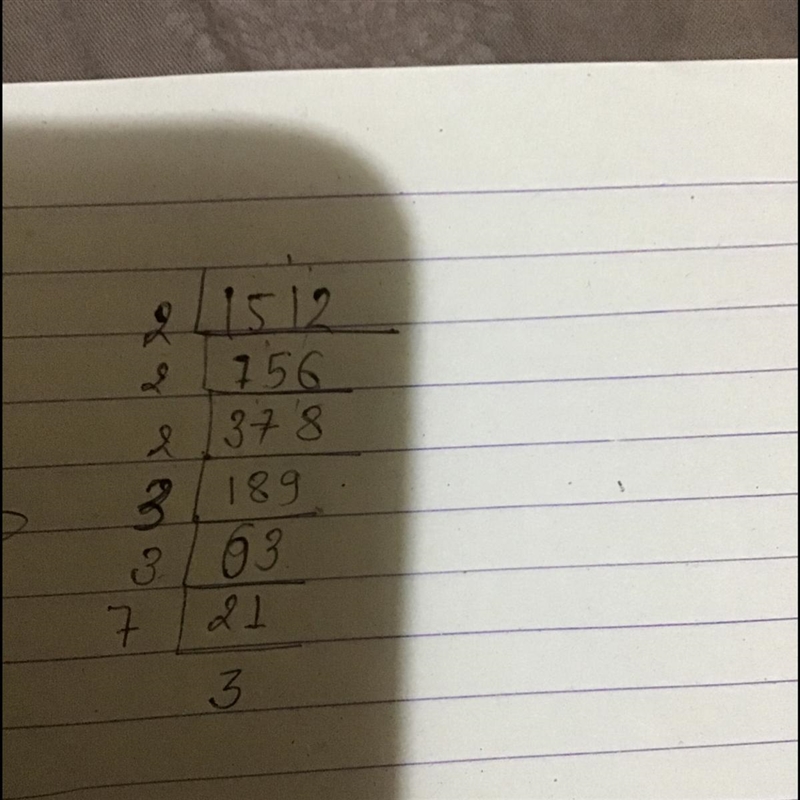 2 1512
2 756
2 378
3 189
3 63
7 21
3